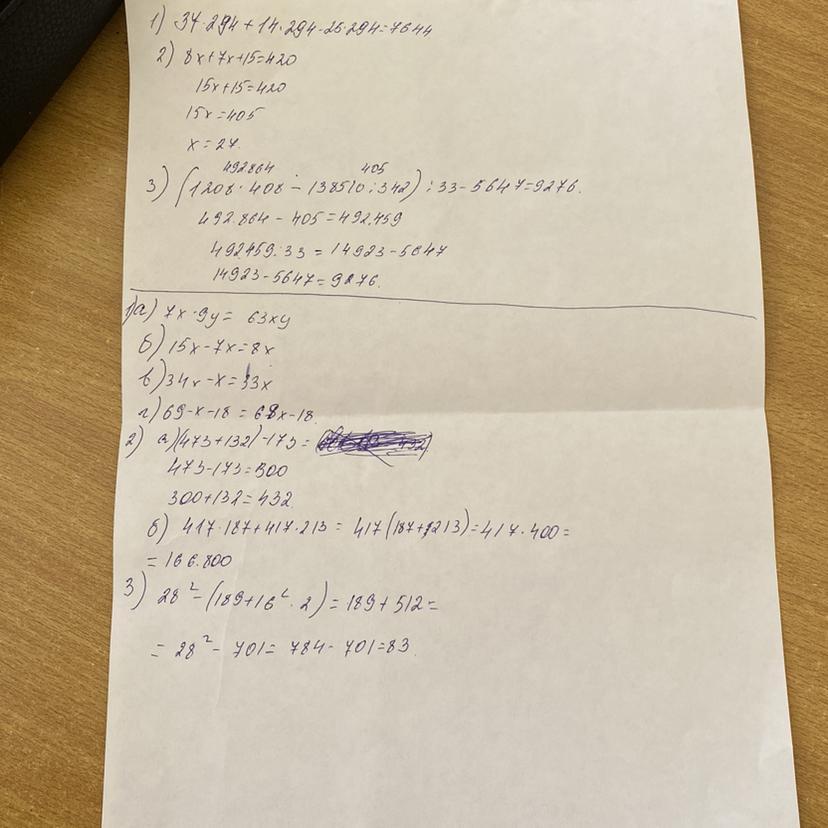 1) 34·294+14·294-26·294=7644
2) 8x+7x+15=420
15x+15=420
15x=405
x=27.
492864 405
3) (1208·408-138510:342):33-5647=9276.
492.864-405=492.459
492459:33=14923-5647
14923-5647=9276.
1)а) 7x·9y= 63xy
б) 15x-7x=8x
в) 34x-x=33x
г) 69-x-18=68x-18.
2) а)(473+132)-173=
473-173=300
300+132=432.
б) 417·187+417·213=417(187+213)=417·400=
=166.800
3) 28²-(189+16²·2)=189+512=
=28²-701=784-701=83.